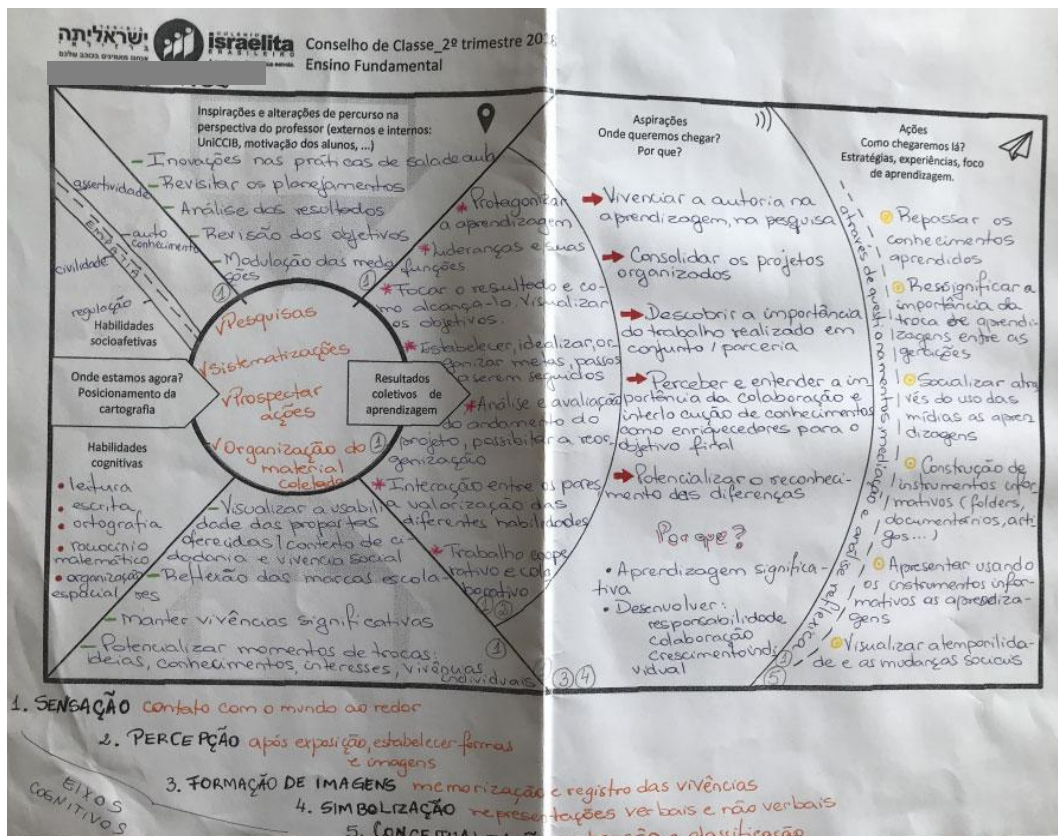 ישראליתה
אנחנו מאמינים בכוכב שלכם
COLÉGIO
israelita
BRASILEIRO
Conselho de Classe_2º trimestre
Ensino Fundamental
Inspirações e alterações de percurso na
perspectiva do professor (externos e internos:
UniCCIB, motivação dos alunos, ...)
- Inovações nas práticas de sala de aula
- Revisitar os planejamentos
- Análise dos resultados
- Revisão dos objetivos
- Modulação das media
ções
①
assertividade
auto
conhecimento
EMPATIA
civilidade
regulação
Habilidades
socioafetivas
Onde estamos agora?
Posicionamento da
cartografia
Habilidades
cognitivas
• leitura
• escrita
• ortografia
• raciocínio
matemático
• organização
espacial
√Pesquisas
√Sistematizações
√Prospectar
ações
√Organização do
material
coletado
Resultados
coletivos de
aprendizagem
①
- Visualizar a usabili
dade das propostas
oferecidas / contexto de ci
dadania e vivência social
- Reflexão das marcas escola
res
- Manter vivências significativas
- Potencializar momentos de trocas:
ideias, conhecimentos, interesses, vivências
individuais
①
* Protagonizar
a aprendizagem
* Lideranças e suas
funções
①
* Focar o resultado e co-
mo alcançá-lo. Visualizar
os objetivos.
* Estabelecer, idealizar, or
ganizar metas, passos
a serem seguidos
* Análise e avaliação
do andamento do
projeto, possibilitar a reor
ganização
* Interação entre os pares,
valorização das
diferentes habilidades
* Trabalho coope
rativo e cola
borativo
① ②
Aspirações
Onde queremos chegar?
Por que?
Vivenciar a autoria na
aprendizagem, na pesquisa
Consolidar os projetos
organizados
Descobrir a importância
do trabalho realizado em
conjunto / parceria
Perceber e entender a im
portência da colaboração e
interlocução de conhecimentos
como enriquecedores para o
objetivo final
Potencializar o reconheci-
mento das diferenças
Por que?
• Aprendizagem significa-
tiva
• Desenvolver:
responsabilidade
colaboração
crescimento indi
vidual
③ ④
através de questionamentos, mediação e análise reflexiva
Ações
Como chegaremos lá?
Estratégias, experiências, foco
de aprendizagem.
Repassar os
conhecimentos
aprendidos
Ressignificar a
importância da
troca de aprendi
zagens entre as
gerações
Socializar atra
vés do uso das
mídias as apren
dizagens
Construção de
instrumentos infor
mativos (folders,
documentários, arti
gos...)
Apresentar usando
os instrumentos infor
mativos as aprendiza-
gens
Visualizar a temporalida-
de e as mudanças sociais
⑤
1. SENSAÇÃO contato com o mundo ao redor
2. PERCEPÇÃO após exposição, estabelecer formas
e imagens
3. FORMAÇÃO DE IMAGENS memorização e registro das vivências
4. SIMBOLIZAÇÃO representações verbais e não verbais
5. classificação
EIXOS
COGNITIVOS